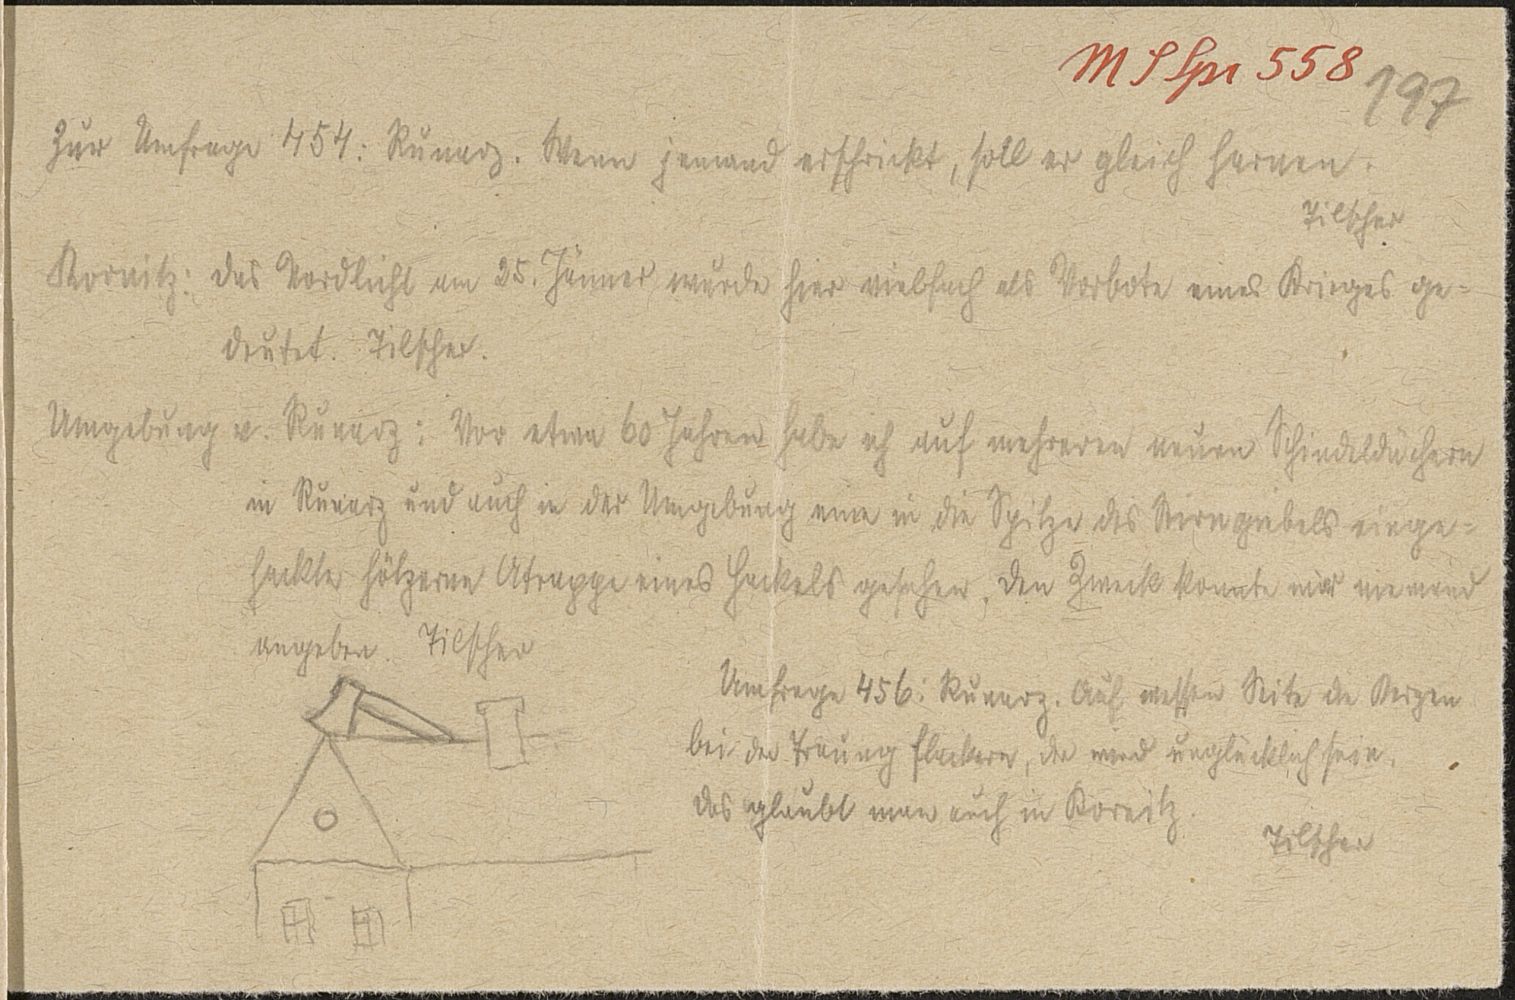 M S Spr 558
197
Zur Umfrage 454: Runarz. Wenn jemand erschrickt, soll er gleich harnen.
Tilscher
Kornitz: das Nordlicht am 25. Jänner wurde hier vielfach als Vorbote eines Krieges ge=
deutet. Tilscher.
Umgebung v. Runarz: Vor etwa 60 Jahren habe ich auf mehreren neuen Schindeldächern
in Runarz und auch in der Umgebung eine in die Spitze des Stirngiebels einge=
hackte hölzerne Atrappe eines Hackels gesehen, den Zweck konnte mir niemand
angeben. Tilscher
Umfrage 456: Runarz. Auf wessen Seite die Kerzen
bei der Trauung flackern, der wird unglücklich sein.
Das glaubt man auch in Kornitz.
Tilscher